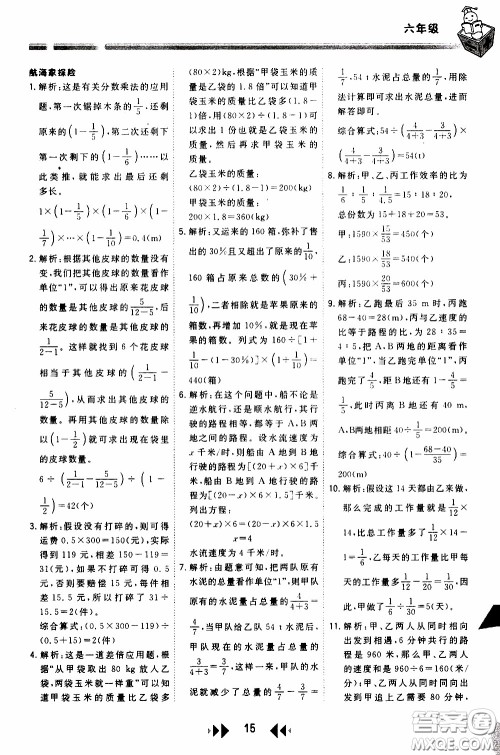 六年级
航海家探险
1. 解析:这是有关分数乘法的应用
题,第一次锯掉木条的1/5,还剩
原来的(1-1/5),第二次还剩下
原来的(1-1/6)……以此
类推,就能知道还剩下
多长。
1×(1-1/5)×(1-1/6)×(1-
1/7)×…×(1- )=0.4(m)
2. 解析:其他皮球的数量没有
变,我们把其他皮球的数量看作
单位“1”,可以得出原来花皮球
的数量是其他皮球的5/(12-5),后
来花皮球的数量是其他皮球的
1/(2-1)。这样找到6个花皮球
相当于其他皮球的(1/(2-1)-
5/(12-5)),从而求出其他皮球的数
量。再用其他皮球的数量除
以(1-1/2)就可以求出现在袋里
的皮球数量。
6÷(1/(2-1)-5/(12-5))÷(1-
1/2)=42(个)
3. 解析:假设没有打碎的,则可得
运费0.5×300=150(元),实际
得到119元,相差150-119=
31(元)。如果不打碎,可得到
0.5元,否则要赔偿15元,每件
相差15.5元,所以打碎了31÷
15.5=2(个)。
综合算式:(0.5×300-119)÷
(0.5+15)=2(个)
4. 解析:这是一道差倍应用题,根
据“从甲袋取出80kg放入乙袋,
两袋玉米就一样重”可以知
道甲袋玉米的质量比乙袋多
(80×2)kg,根据“甲袋玉米的
质量是乙袋的1.8倍”可知甲袋
玉米的质量比乙袋多(1.8-1)
倍。用(80×2)÷(1.8-1)就可
以求出乙袋玉米的质
量,然后再求甲袋玉米的
质量。
乙袋玉米的质量:
(80×2)÷(1.8-1)=200(kg)
甲袋玉米的质量:
200×1.8=360(kg)
5. 解析:又运来的160箱,弥补了售
出的30%后,又超出了原来的1/10,
160箱占原来总数的(30%+
1/10),二者相除就是苹果原来的
箱数,再乘(1+1/10)就是苹果现在
的箱数。列式为160÷
[1/10-(1-30%)]×(1+1/10)=
440(箱)
6. 解析:在这个问题中,船不论是
逆水航行,还是顺水航行,其行
驶的路程是相同的,都等于A、B
两地之间的距离。设水流速度为
x千米/时,则船由A地到B地
行驶的路程为[(20+x)×6]千米,
船由B地到A地行驶的路程为
[(20-x)×6×1.5]千米。
列方程为:
(20+x)×6=(20-x)×6×1.5
x=4
水流速度为4千米/时。
7. 解析:根据题意,把两队原有
水泥的总量看作单位“1”,甲队
原有的水泥量占总量的
4/(4+3),当甲队给乙队54t水泥后,
甲队的水泥量占总量的
3/(4+3),则这54t水
泥就占总量的4/(4+3)-3/(4+3)=
1/7,54t水泥的对应分率是1/7,用除
法计算即可求出水泥总量,即
54÷1/7。
综合算式:54÷(4/(4+3)-
3/(4+3))=54(t)
8. 解析:甲、乙、丙工作效率的比为
1/6:1/5:1/ =15:18:20,
总份数为15+18+20=53。
甲:1590×15/53=450(个)
乙:1590×18/53=540(个)
丙:1590×20/53=600(个)
9. 解析:乙跑最后35m时,丙跑了
68-40=28(m),丙与乙的速度的
比等于路程的比为28:35=
4:5。把A、B两地的距离看作
单位“1”,当乙跑完“1”时,丙
才跑完4/5,还剩1-4/5=1/5,
此时丙离B地还有40m,
A、B两地相距40÷1/5=200(m)。
综合算式:40÷(1-(68-40)/35)=
200(m)
10. 解析:假设这14天都由乙来做,
那么完成的工作量就是1/12×14,
比总工作量多了1/12×14-1=
1/6,因为乙每天的工作量比甲每
天的工作量多1/12- =1/30,因此
甲做了1/6÷1/30=5(天)。
11. 解析:甲、乙两人从同时同向
出发到相遇,6分钟共行的
路程是960米,那么每分钟两人
的速度和是960÷6=160(米/
分);甲、乙两人从同时同向
出发到甲追上乙需要80分钟,
15